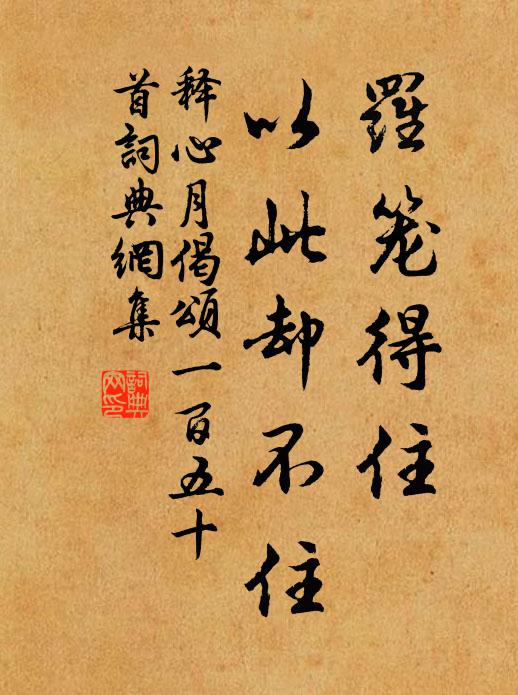 羅笼得住
以此却不住
释心月偈頌一百五十
首詞典網集
詞典
网印